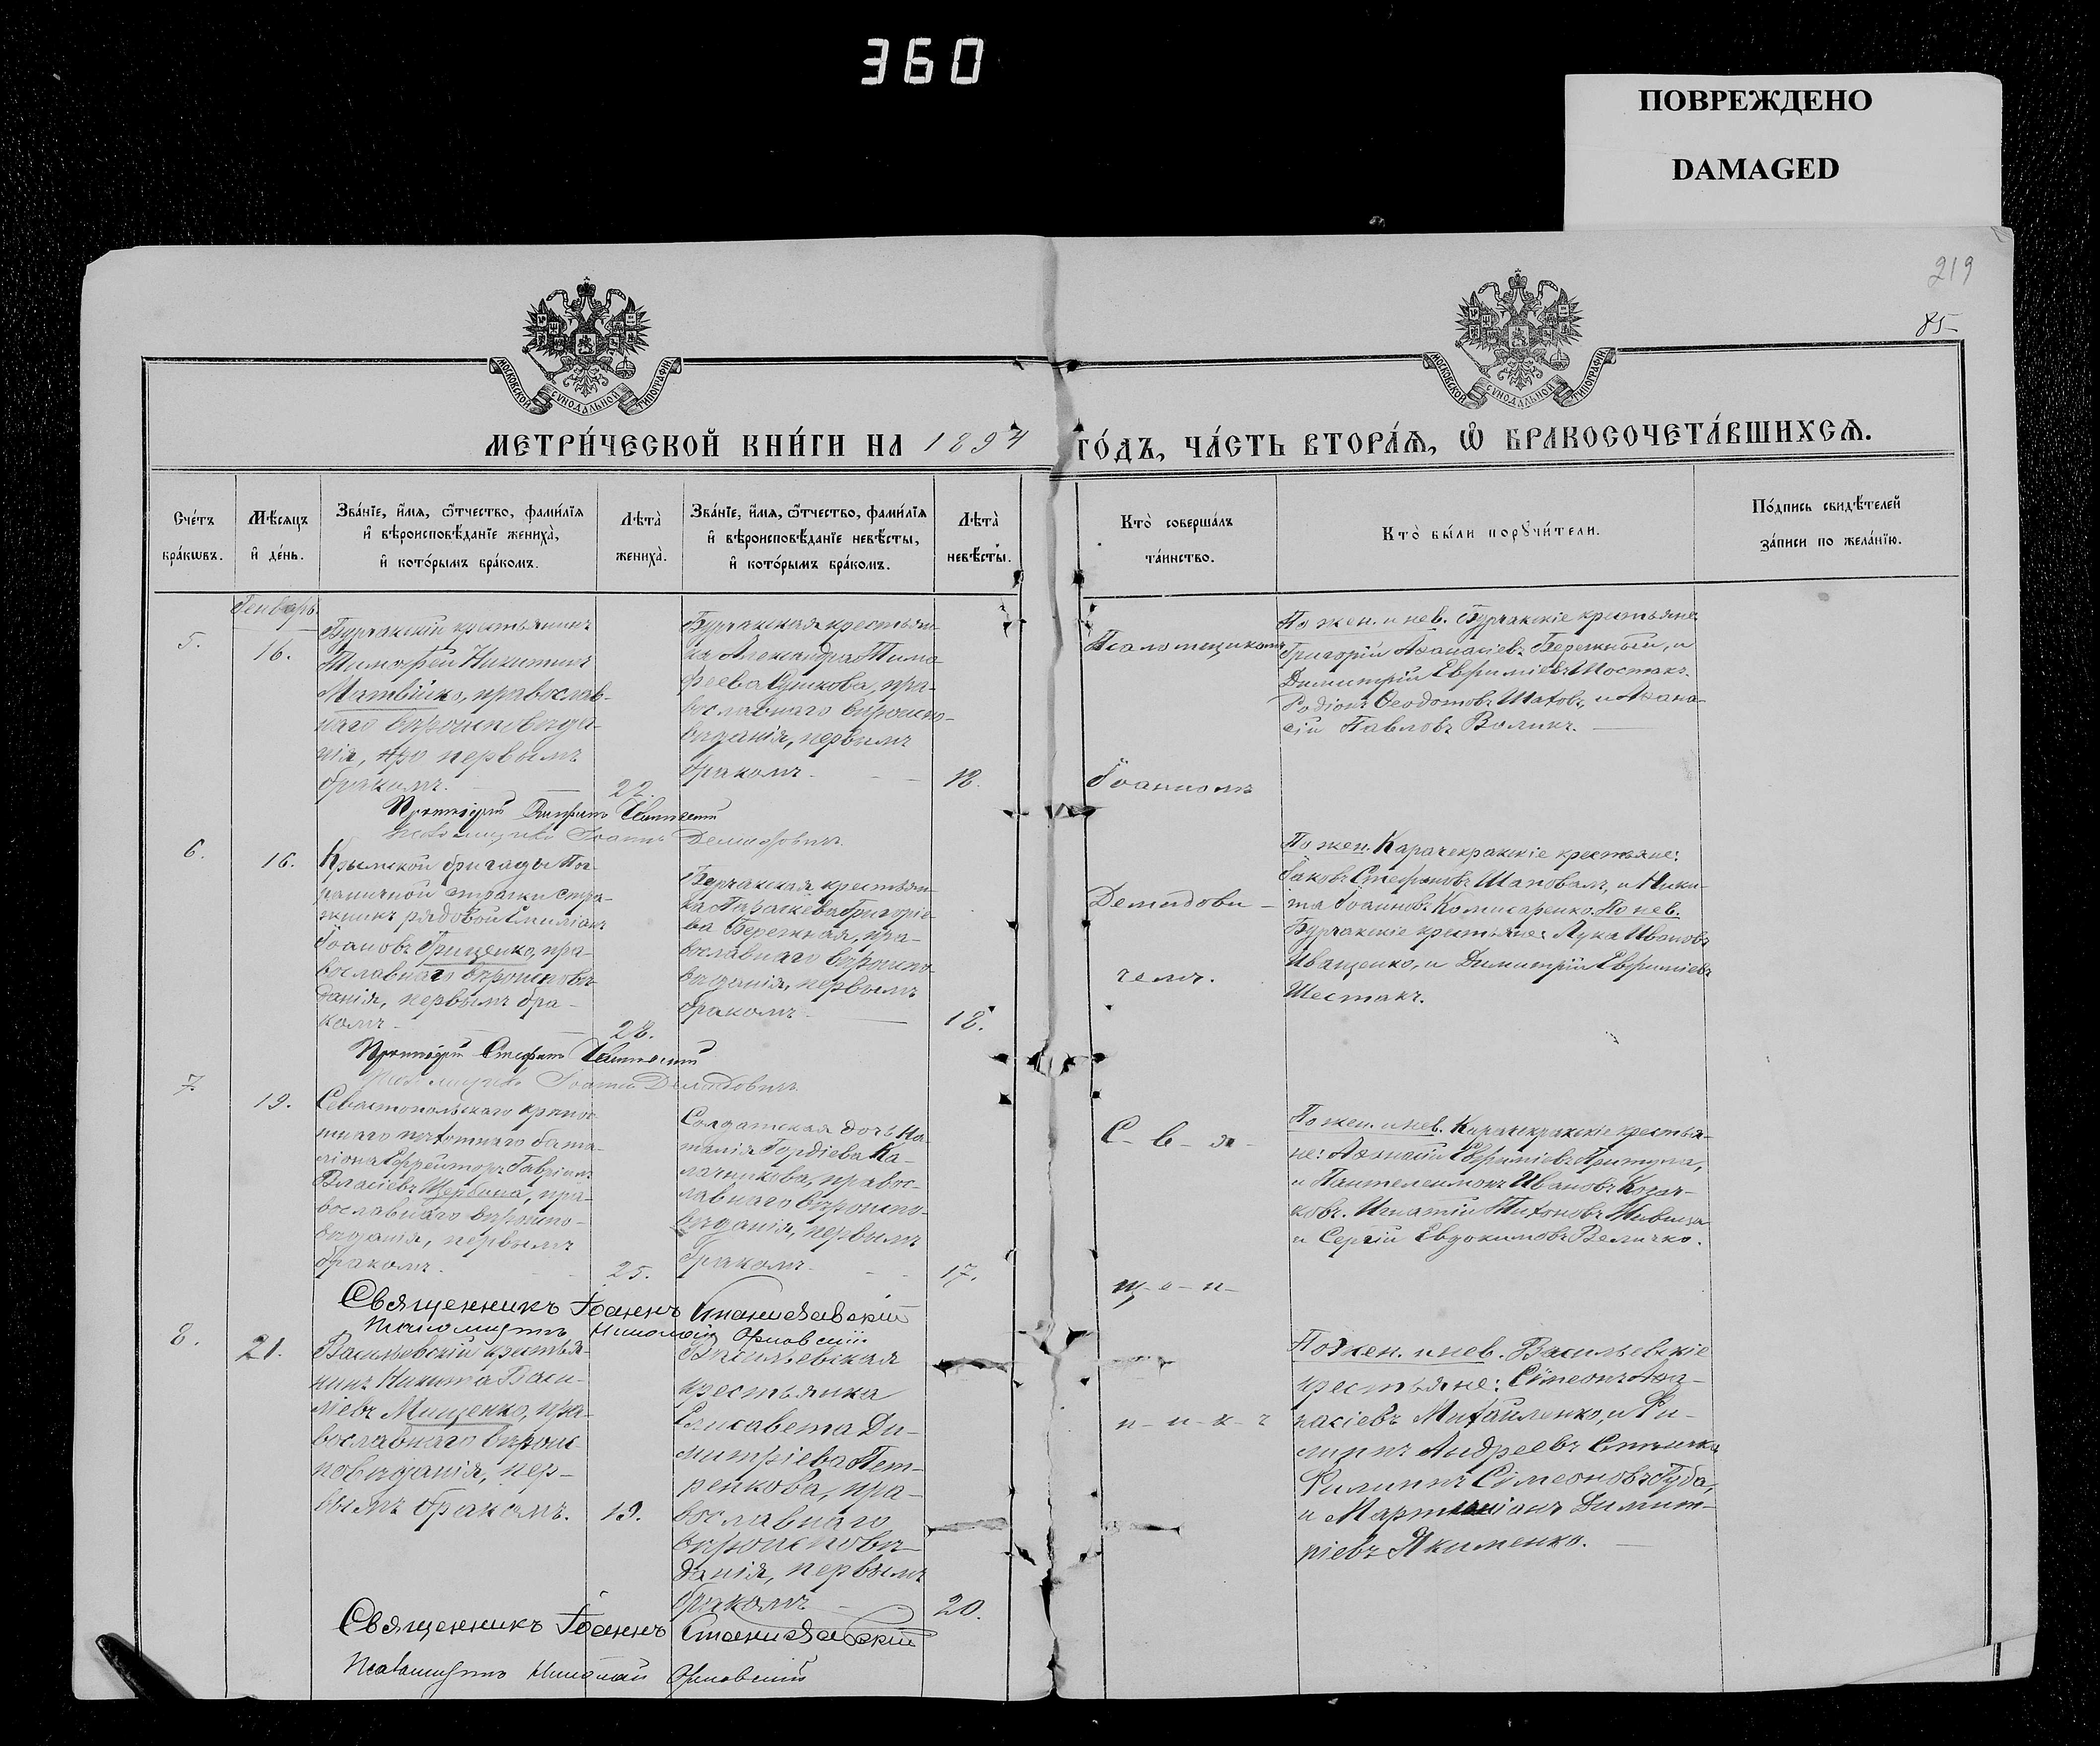 360
ПОВРЕЖДЕНО
DAMAGED
219
85
МОСКОВСКОЙ СѴНОДАЛЬНОЙ ТИПОГРАФІИ
МОСКОВСКОЙ СѴНОДАЛЬНОЙ ТИПОГРАФІИ
МЕТРИ́ЧЕСКОЙ КНИ́ГИ НА 1894 ГО́ДЪ, ЧА́СТЬ ВТОРА́Ѧ, Ѽ БРАКОСОЧЕТА́ВШИХСѦ.
Сче́тъ бра́кѡвъ.
Мѣ́сяцъ и҆ де́нь.
Зва́нїе, и҆́мѧ, ѻ҆́тчество, фами́лїѧ и҆ вѣроисповѣ́данїе жениха̀, и҆ кото́рымъ бра́комъ.
Лѣ́та̀ жениха̀.
Зва́нїе, и҆́мѧ, ѻ҆́тчество, фами́лїѧ и҆ вѣроисповѣ́данїе невѣ́сты, и҆ кото́рымъ бра́комъ.
Лѣ́та̀ невѣ́сты.
Кто̀ соверша́лъ та́инство.
Кто̀ бы́ли порꙋчи́тели.
По́дпись свидѣ́телей за́писи по жела́нїю.
Генварь
5.
16.
Бурчакскій крестьянинъ
Тимофей Никитинъ
Матвійко, православ-
наго вѣроисповѣда-
нія, первымъ
бракомъ.
22.
Бурчакская крестьян-
ка Александра Тимо-
феева, пра-
вославнаго вѣроиспо-
вѣданія, первымъ
бракомъ.
18.
Псаломщикомъ
Іоанномъ
По жен. и нев. Бурчакскіе крестьяне
Григорій Аѳанасіевъ Бережный, и
Димитрій Евфиміевъ Шостакъ.
Родіонъ Ѳеодотовъ Шаховъ, и Аѳана-
сій Павловъ Воликъ.
Протоіерей Стефанъ
Іоаннъ Демидовичъ
6.
16.
Крымской бригады Пог-
раничной стражи стра-
жникъ рядовой Емиліанъ
Іоановъ Грищенко, пра-
вославнаго вѣроисповѣ-
данія, первымъ бра-
комъ
28.
Бурчакская крестьян-
ка Параскева Григоріе-
ва Бережная, пра-
вославнаго вѣроиспо-
вѣданія, первымъ
бракомъ
18.
Демидови-
чемъ.
По жен. Карачекракскіе крестьяне:
Іаковъ Стефановъ Шаповалъ, и Ники-
та Іоанновъ Комисаренко. По нев.
Бурчакскіе крестьяне: Лука Ивановъ
Иващенко, и Димитрій Евфиміевъ
Шестакъ.
Протоіерей Стефанъ
Іоаннъ Демидовичъ
7.
19.
Севастопольскаго крѣпос-
тнаго пѣхотнаго бата-
ліона Ефрейторъ Гавріилъ
Власіевъ Щербина, пра-
вославнаго вѣроиспо-
вѣданія, первымъ
бракомъ.
25.
Солдатская дочь На-
талія Гордіева Ка-
лачникова, правос-
лавнаго вѣроиспо-
вѣданія, первымъ
бракомъ.
17.
С-в-я-
щ-е-н-
По жен. и нев. Карачекракскіе крестья-
не: Аѳанасій Евфиміевъ Притула,
и Пантелеимонъ Ивановъ Козач-
ковъ. Игнатій Тихоновъ
и Сергій Евдокимовъ Величко.
Священникъ Іоаннъ Станиславскій
Псаломщикъ Николай Орловскій
8.
21.
Васильевскій крестья-
нинъ Никита Васи-
ліевъ Мищенко, пра-
вославнаго вѣроис-
повѣданія, пер-
вымъ бракомъ.
19.
Васильевская
крестьянка
Елисавета Ди-
митріева Пет-
ренкова, пра-
вославнаго
вѣроисповѣ-
данія, первымъ
бракомъ
20.
н-и-к-ъ
По жен. и нев. Васильевскіе
крестьяне: Сімеонъ Аѳа-
насіевъ Михайленко, и Фи-
липпъ Андреевъ
Филиппъ Сімеоновъ Губа,
и Димит-
ріевъ Якименко.
Священникъ Іоаннъ Станиславскій
Псаломщикъ Николай Орловскій